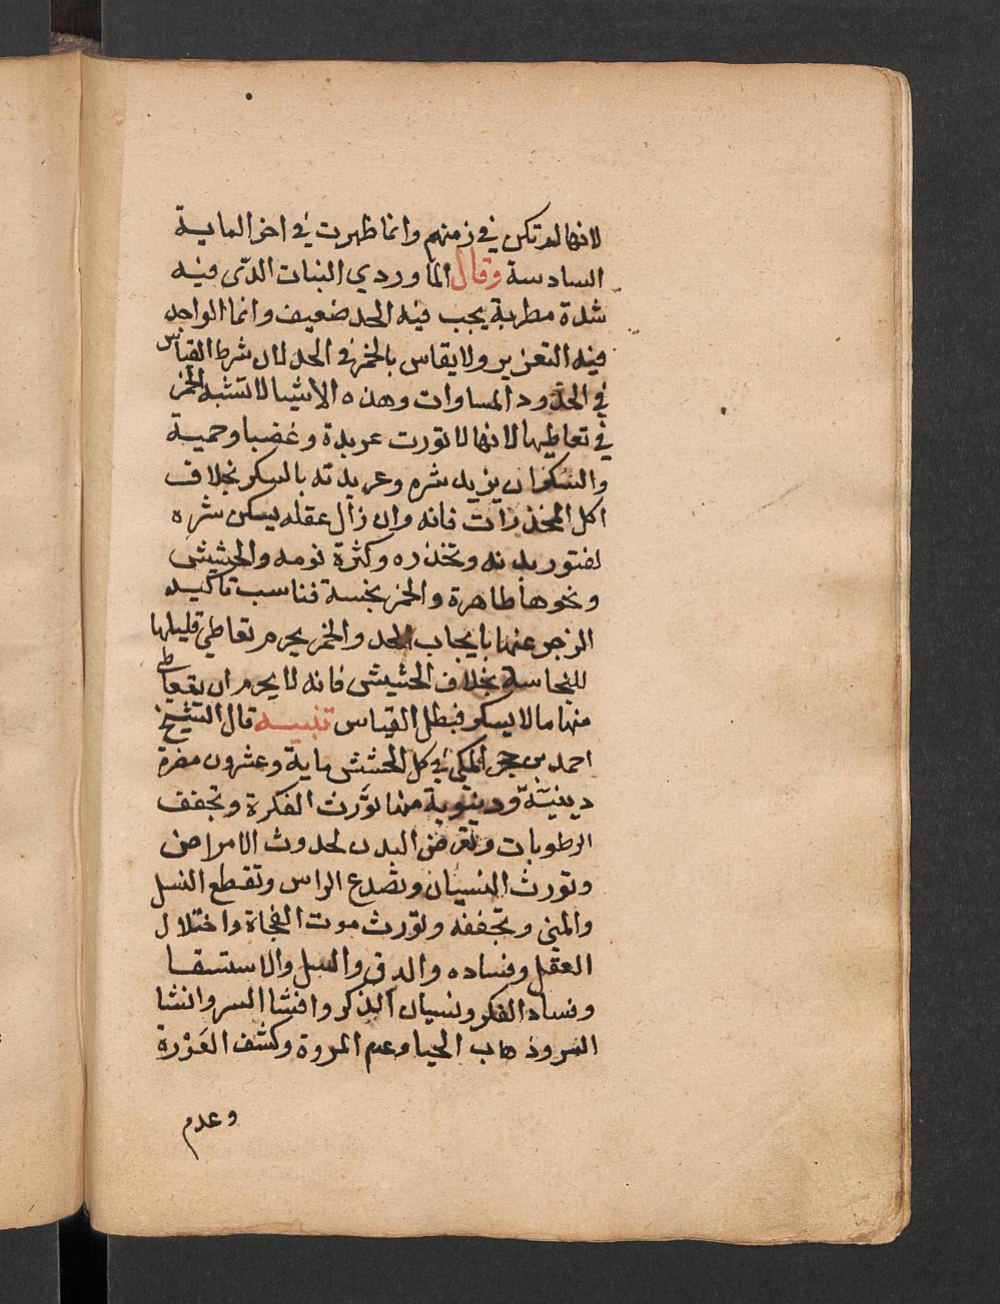 لانها لم تكن في زمنهم وانما ظهرت في اخر الماية
السادسة وقال الماوردي النبات الذي فيه
شدة مطربة يجب فيه الحد ضعيف وانما الواجب
فيه التعزير ولا يقاس بالخمر في الحد لان شرط القياس
في الحدود المساوات وهذه الاشيا لا تشبه الخمر
في تعاطيها لانها لا تورث عربدة وغضبا وحمية
والسكران يزيد شره وعربدته بالسكر بخلاف
اكل المخدرات فانه وان زال عقله يسكن شره
لفتور بدنه وتخذره وكثرة نومه والحشيش
ونحوها طاهرة والخمر نجسة فناسب تاكيد
الزجر عنها بايجاب الحد والخمر يحرم تعاطي قليلها
للنجاسة بخلاف الحشيش فانه لا يحرم ان يتعاطى
منها ما لا يسكر فبطل القياس تنبيه قال الشيخ
احمد بن حجر المكي في كل الحشيش ماية وعشرون مضرة
دينية ودنيوية منها تورث الفكرة وتجفف
الرطوبات وتعرض البدن لحدوث الامراض
وتورث النسيان وتصدع الراس وتقطع النسل
والمني وتجففه وتورث موت الفجاة واختلال
العقل وفساده والدق والسل والاستسقا
وفساد الفكر ونسيان الذكر وافشا السر وانشا
الشر وذهاب الحيا وعدم المروة وكشف العَوْرة
وعدم